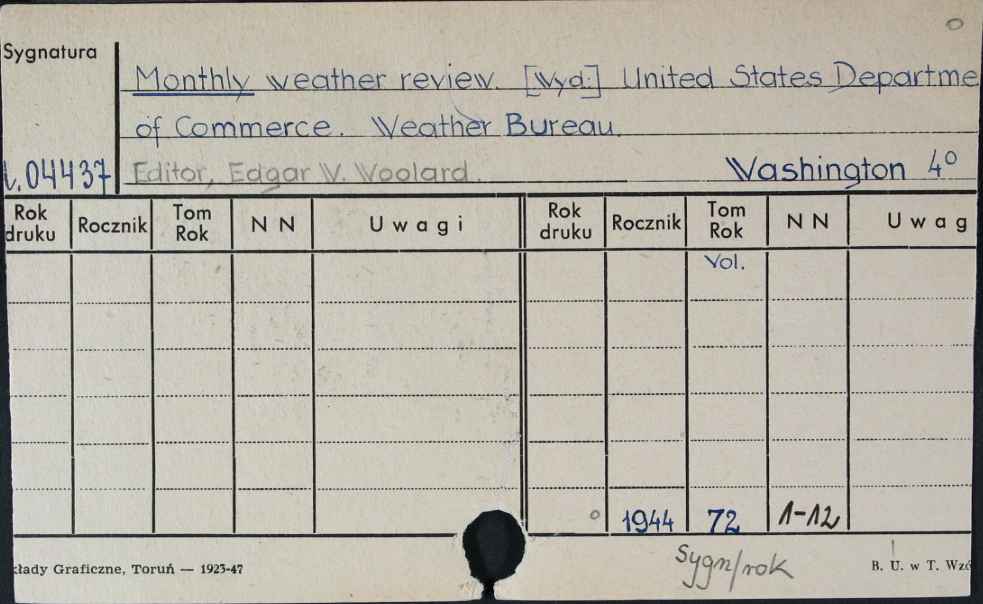 Sygnatura
Monthly weather review. [Wyd:] United States Departme
of Commerce. Weather Bureau.
04437 Editor, Edgar W. Woolard. Washington 4°
Rok druku Rocznik Tom Rok N N Uwagi Rok druku Rocznik Tom Rok N N Uwag
Vol.
1944 72 1-12
Sygn/rok
kłady Graficzne, Toruń — 1923-47 B. U. w T. Wzó